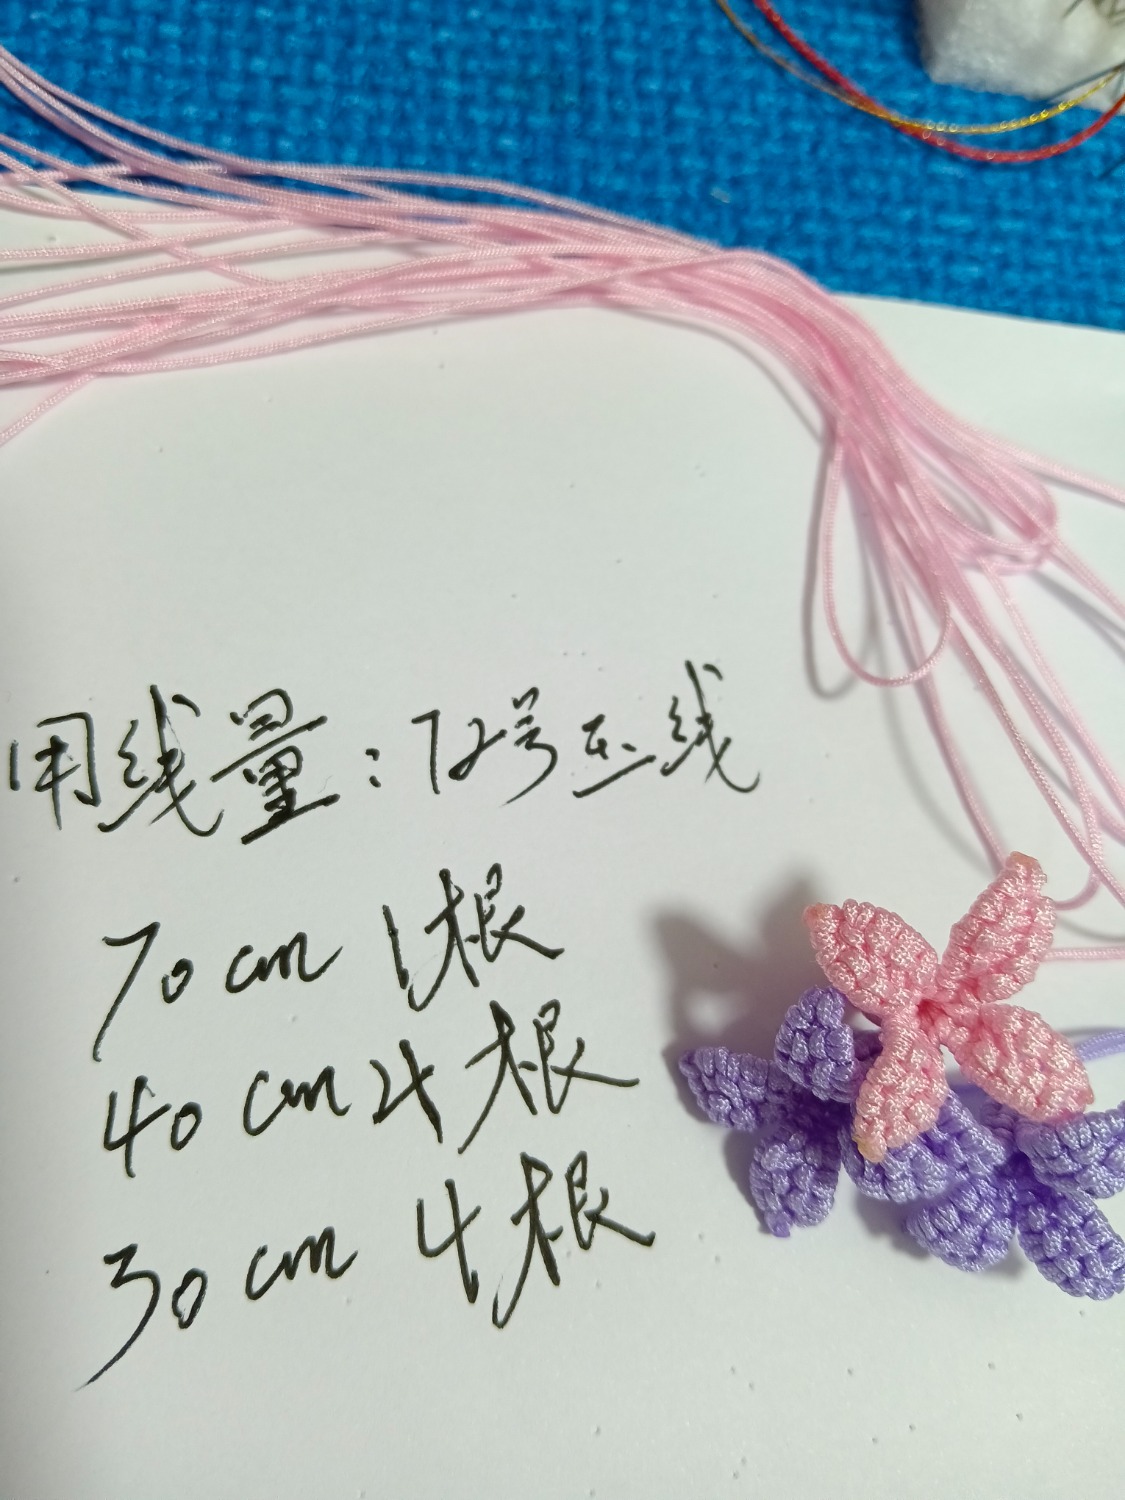 用线量：72号玉线
70cm 1根
40cm 4根
30cm 4根